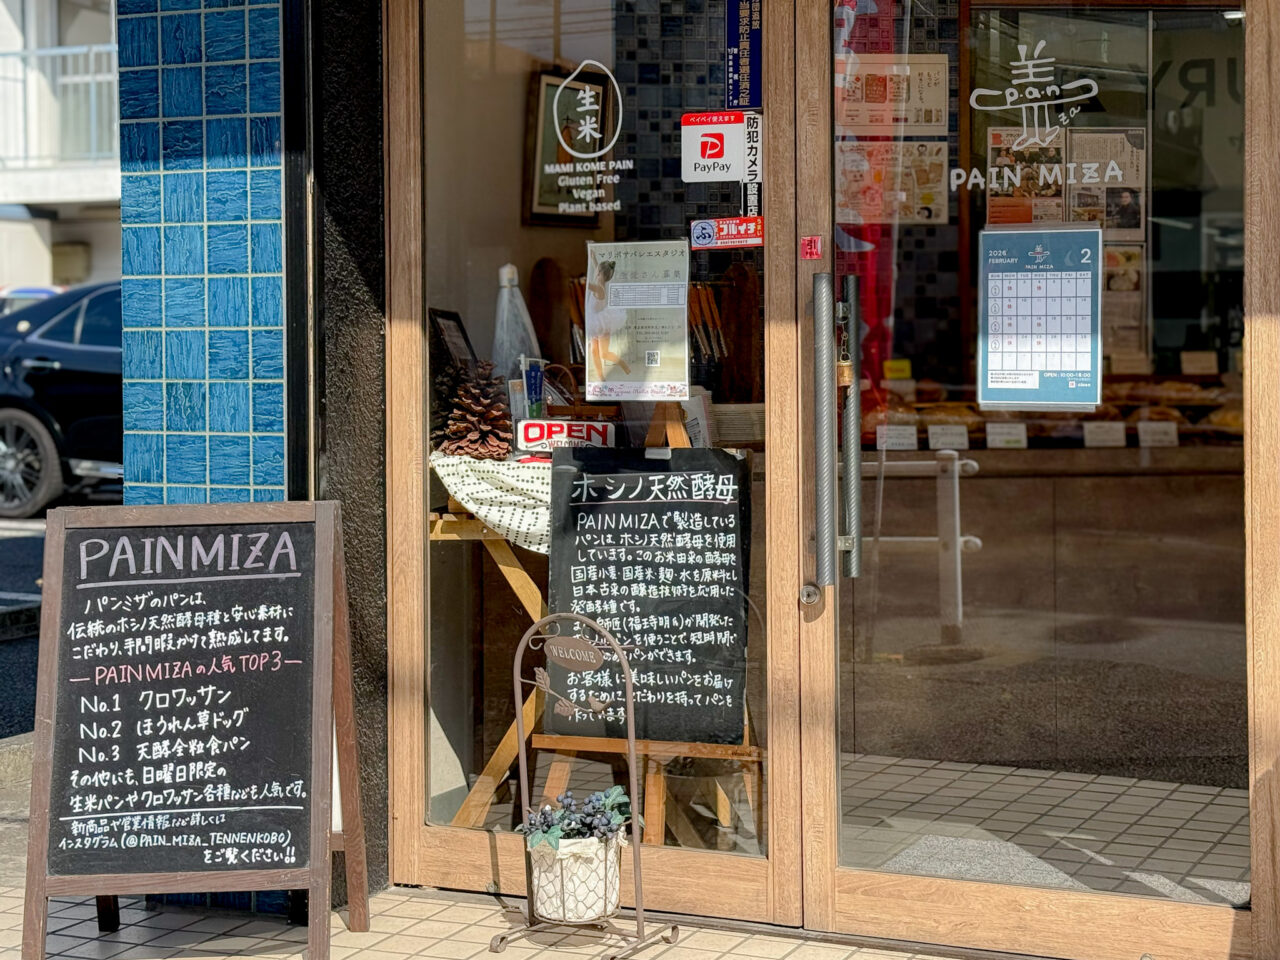 PAIN MIZA
パンミザのパンは、
伝統のホシノ天然酵母種と安心素材に
こだわり、手間暇かけて熟成します。
—PAIN MIZAの人気TOP3—
No.1 クロワッサン
No.2 ほうれん草ドッグ
No.3 天酵全粒食パン
その他にも、日曜日限定の
生米パンやクロワッサン各種なども人気です。
新商品や営業情報など詳しくは
インスタグラム(@PAIN_MIZA_TENNENKOBO)
をご覧ください!!
生米
MAMI KOME PAIN
Gluten Free
Vegan
Plant based
ペイペイ使えます
PayPay
防犯カメラ設置店
フルイチ
マリポアバレエスタジオ
生徒さん募集
OPEN
WELCOME
ホシノ天然酵母
PAIN MIZAで製造している
パンは、ホシノ天然酵母を使用
しています。このお米由来の酵母を
国産小麦・国産米・麹・水を原料とし
日本古来の醸造技術を応用した
発酵種です。
師匠(福王寺明氏)が開発した
パンを使うことで、短時間で
パンができます。
お客様に美味しいパンをお届け
するためにこだわりを持ってパンを
作っています
WELCOME
pan
za
PAIN MIZA
引
2026
FEBRUARY
PAIN MIZA
2
OPEN : 10:00-18:00
close